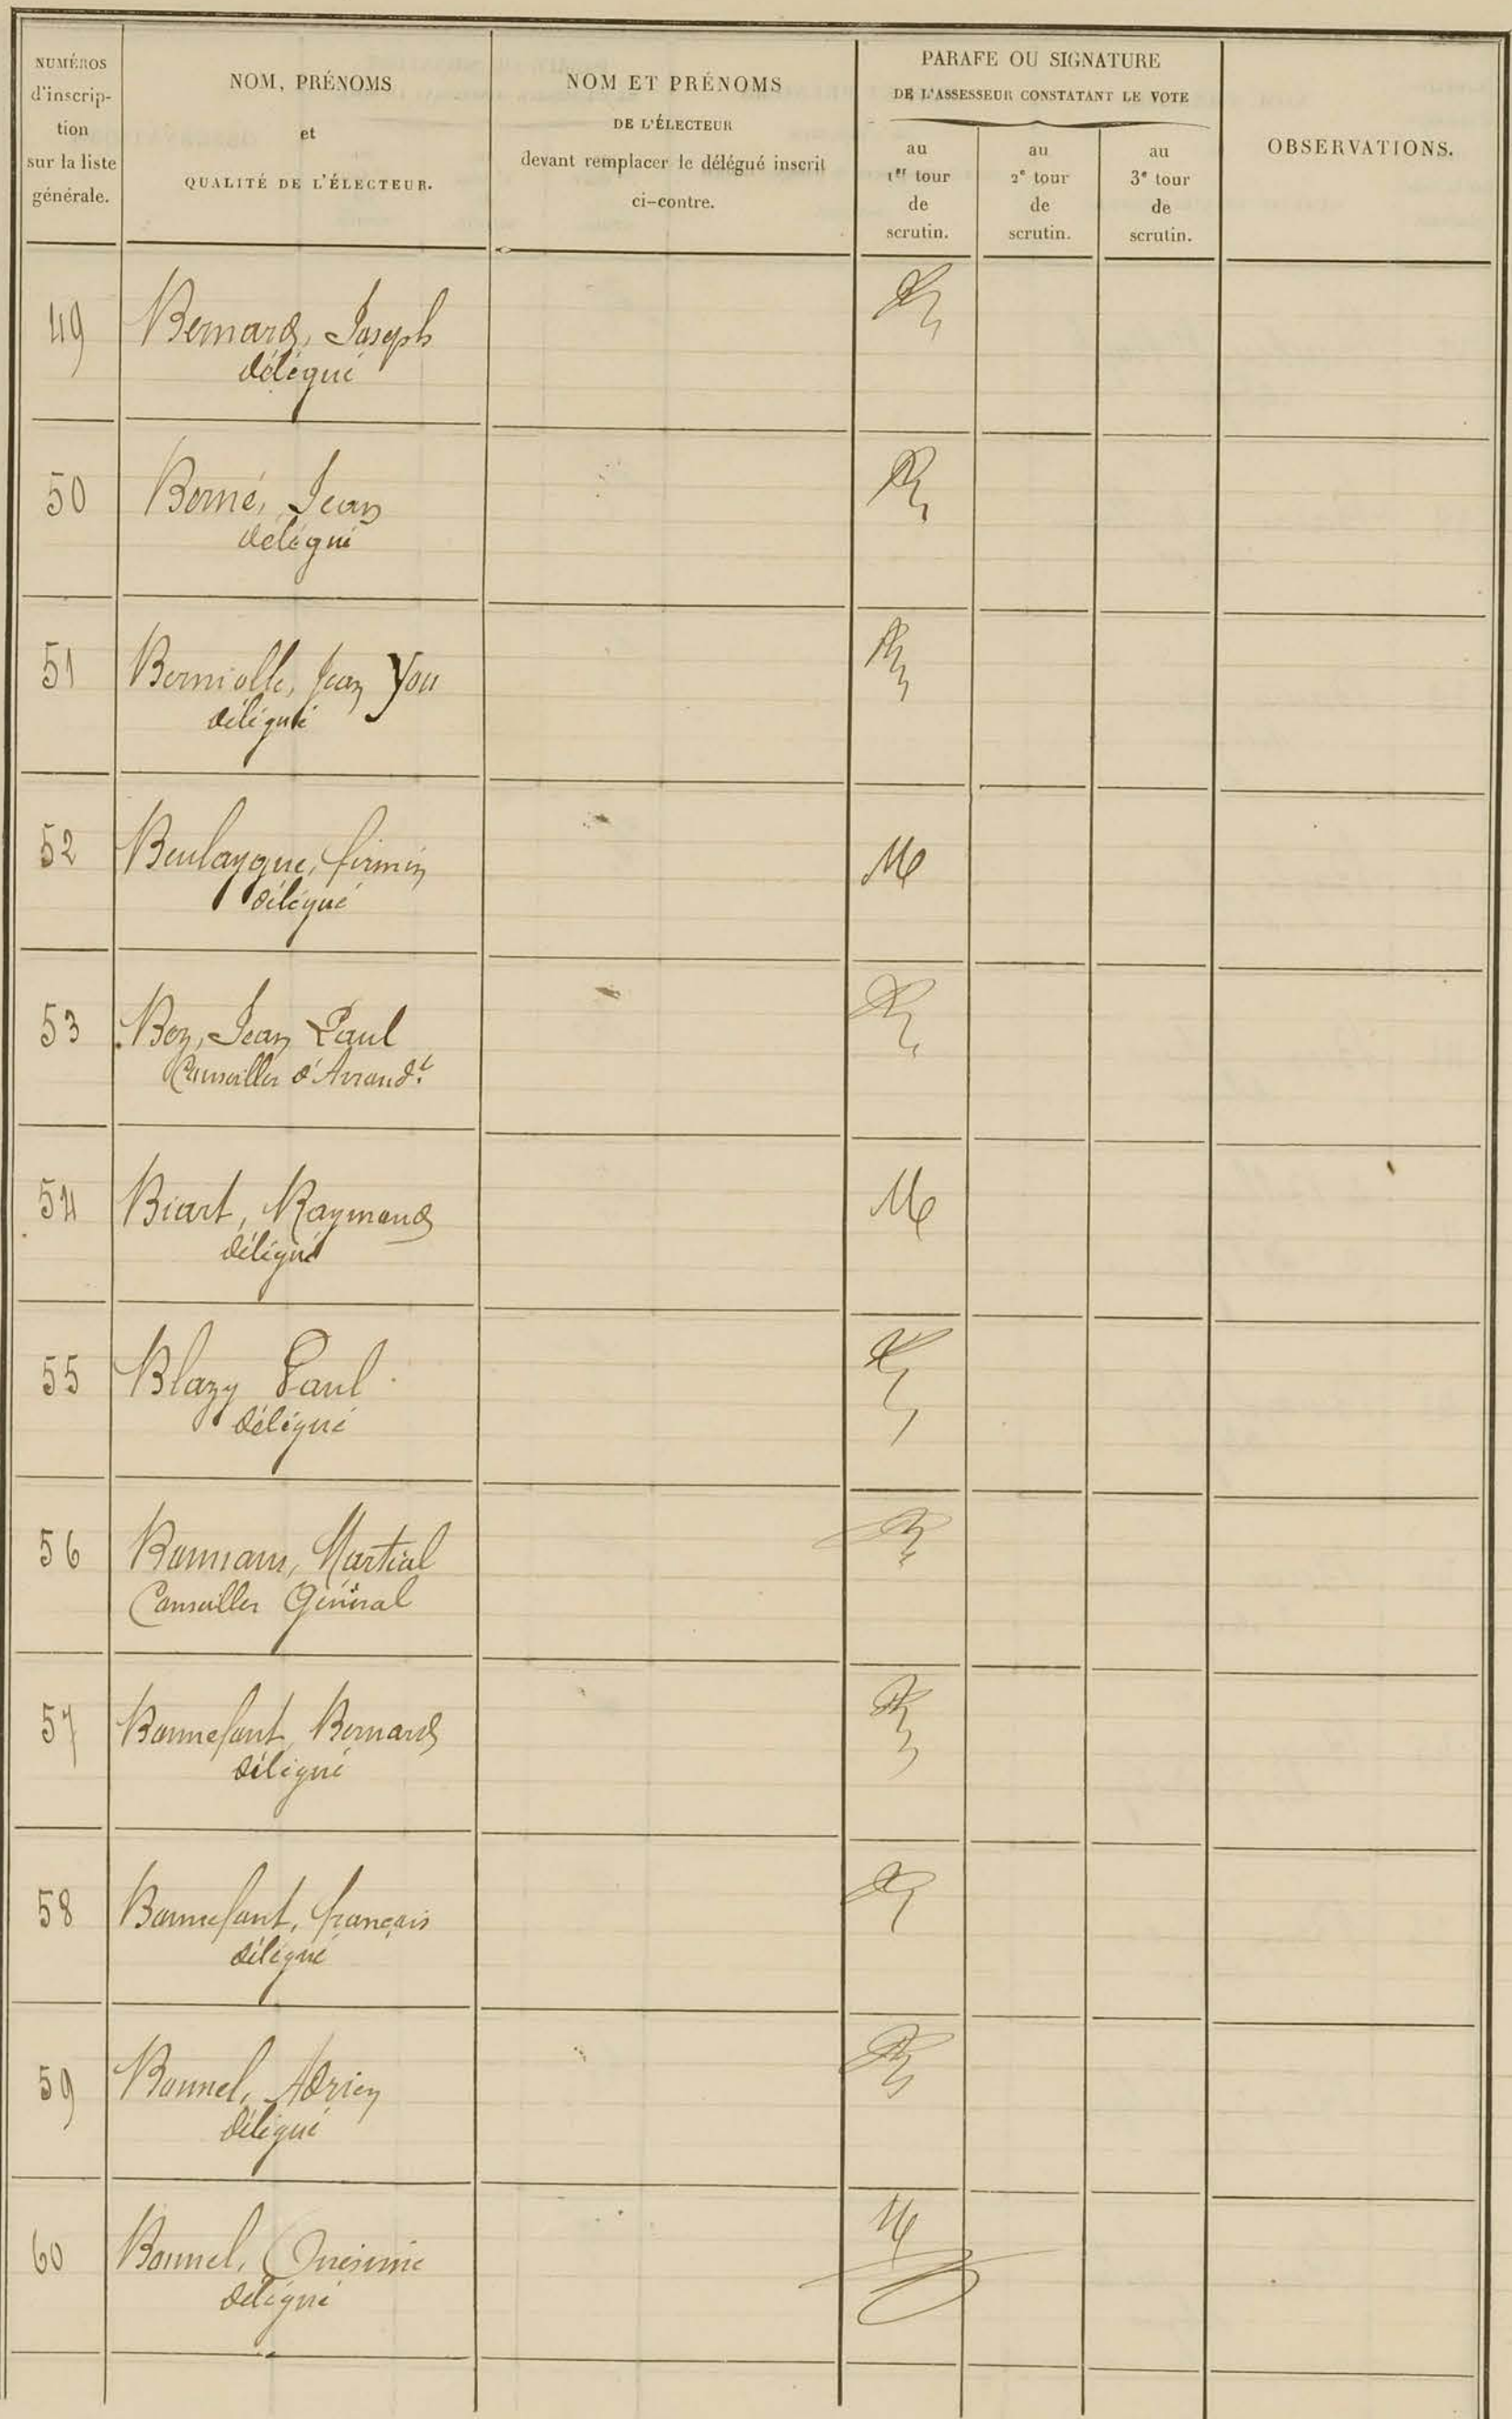 NUMÉROS
d'inscrip-
tion
sur la liste
générale.
NOM, PRÉNOMS
et
QUALITÉ DE L'ÉLECTEUR.
NOM ET PRÉNOMS
DE L'ÉLECTEUR
devant remplacer le délégué inscrit
ci-contre.
PARAFE OU SIGNATURE
DE L'ASSESSEUR CONSTATANT LE VOTE
au
1er tour
de
scrutin.
au
2e tour
de
scrutin.
au
3e tour
de
scrutin.
OBSERVATIONS.
49
Bernard, Joseph
délégué
50
Berné, Jean
délégué
51
Jean
délégué
52
Firmin
délégué
53
Bez, Jean Paul
Conseiller d'Arrondt
54
Biart, Raymond
délégué
55
Blazy Paul
délégué
56
Martial
Conseiller Général
57
Bonnefont, Bernard
délégué
58
Bonnefont, François
délégué
59
Bonnel, Adrien
délégué
60
Bonnel, Onésime
délégué